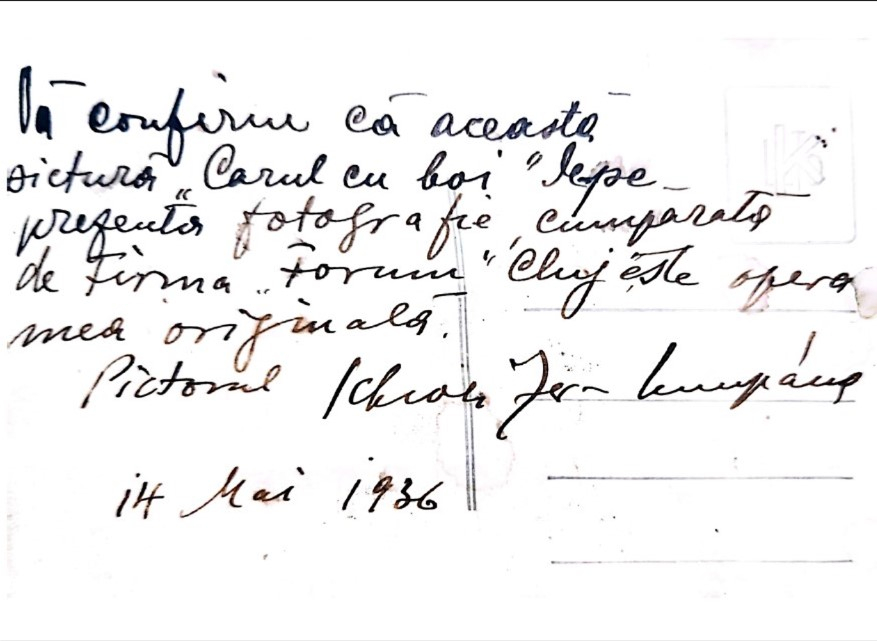 Vă confirm că această
pictură „Carul cu boi" pe
prezenta fotografie, cumpărată
de Firma „Forum" Cluj este opera
mea originală.
Pictorul
14 Mai 1936